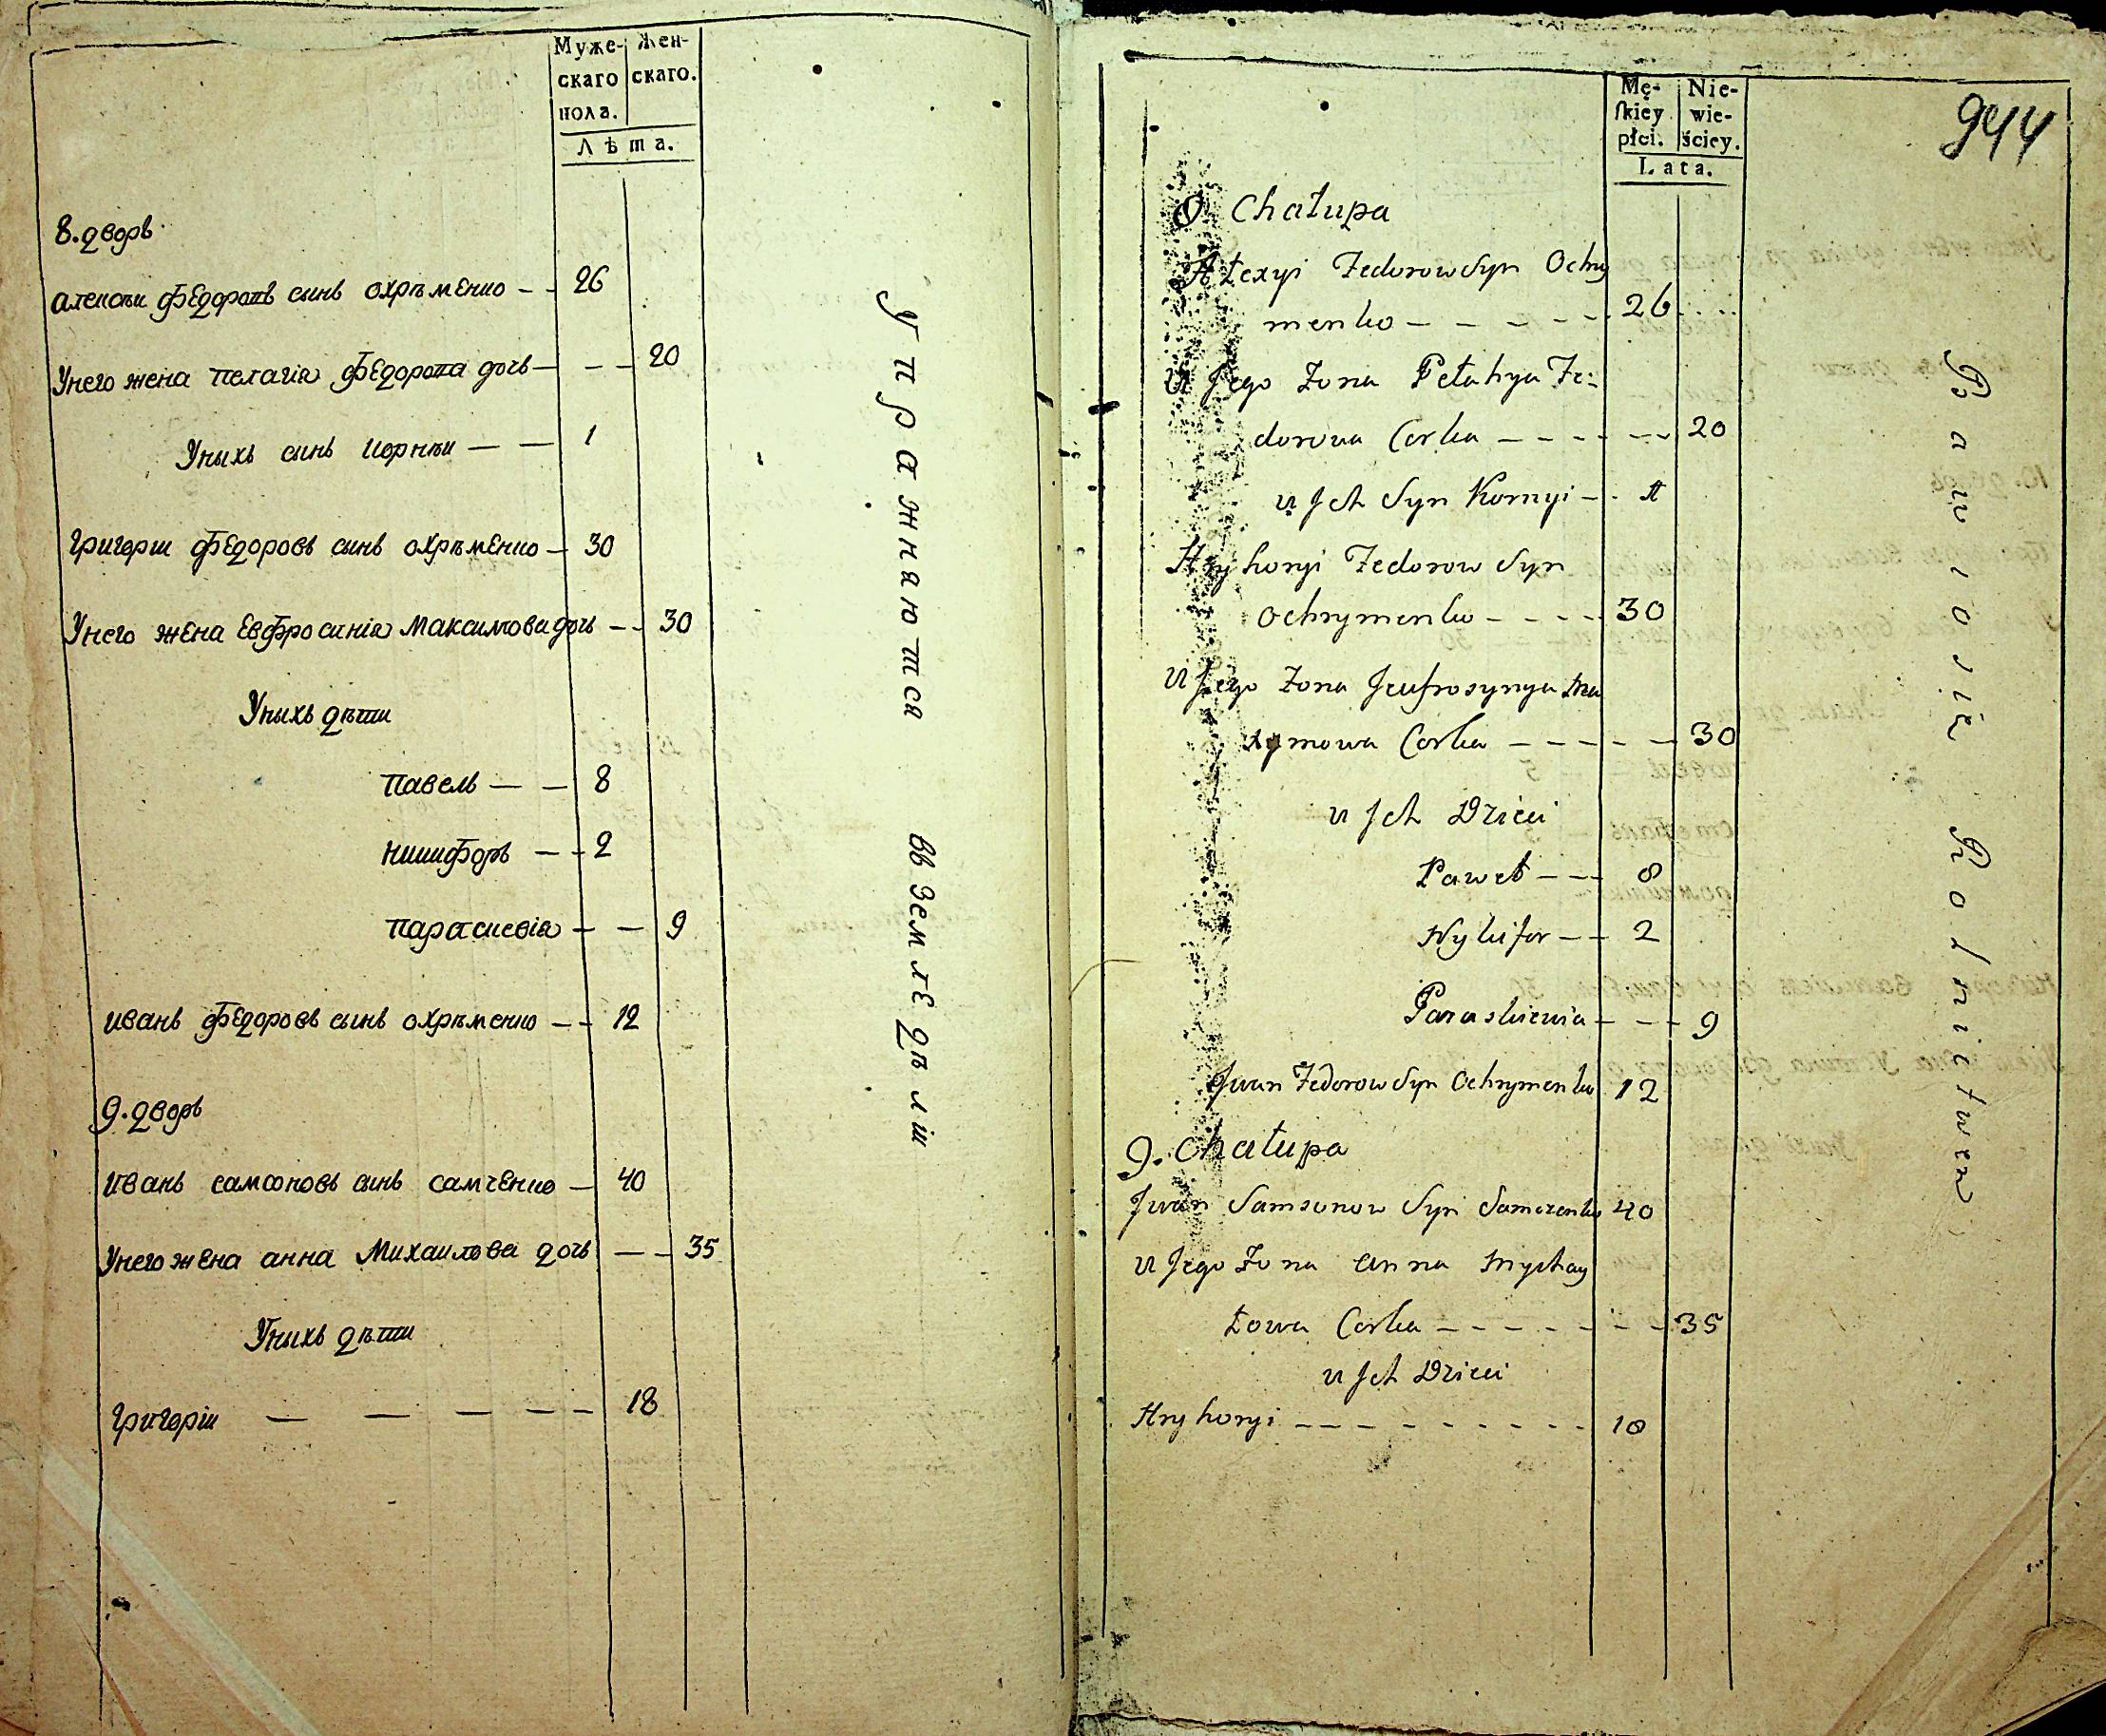 Муже- Жен-
скаго скаго.
пола.
Лѣта.
8. дворъ
алексѣи Федоровъ сынъ охрѣменко - - 26
Унего жена пелагія Федорова дочь - - - 20
Унихъ сынъ корнѣи — — 1
григории Федоровъ сынъ охрѣменко — 30
Унего жена Евфросинія Максимова дочь - - 30
Унихъ дѣти
павелъ — — 8
никифоръ — - 2
парасковія - — 9
иванъ Федоровъ сынъ охрѣменко - - 12
9. дворъ
иванъ самсоновъ сынъ самченко — 40
Унего жена анна Михаилова дочь — - 35
Унихъ дѣти
григоріи — — — - - 18
Упражняютса въ Землѣдѣліи
944
Mę- Nie-
skiey wie-
płci. ściey.
Lata.
8. Chałupa
Ałexyi Fedorow Syn Ochry
menko - - - - - - 26 . . . .
U Jego Żona Pełahya Fe-
dorowa Corka - - - - - - 20
u Jch Syn Kornyi - . 1
Hryhoryi Fedorow Syn
Ochrymenko - - - - 30
U Jego Żona Jeufrosynya Ma
xymowa Corka - - - - - 30
u Jch Dzieci
Paweł - - - 8
Nykifor - - 2
Paraskiewia - - - 9
Jwan Fedorow Syn Ochrymenko 12
9. Chałupa
Jwan Samsonow Syn Samczenko 40
U Jego Żona Anna Mychay
łowa Corka - - - - - - - 35
u Jch Dzieci
Hryhoryi - - - - - - - - - 18
Bawio Sie Rolnictwem